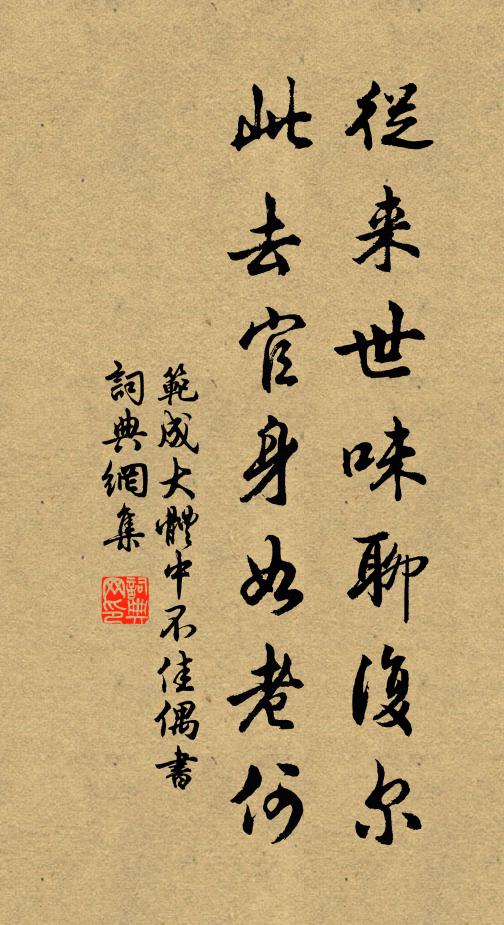 從来世味聊復尔
此去官身如老何
範成大體中不佳偶書
詞典網集
詞典网印